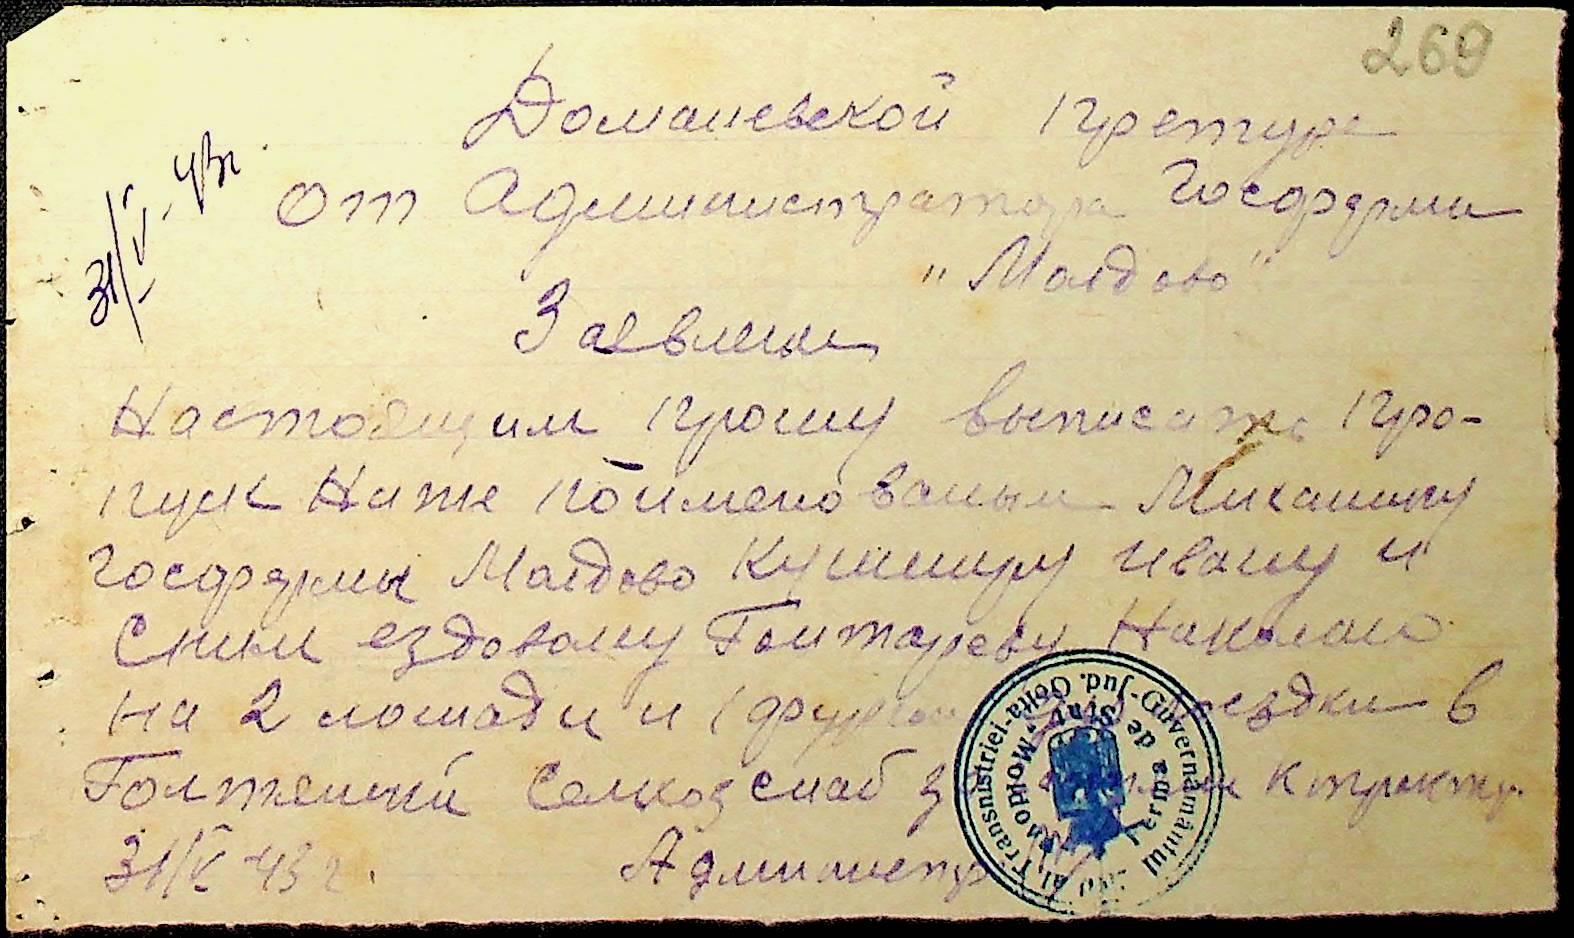 269
Доманевской Претуре
31/V-43г
от Администратора Госфермы
"Молдово"
Заевление
Настоящим прошу выписать про-
пуск Ниже поименованым Миханику
Госфермы Молдово Кушниру Ивану и
Сним ездовому Гонтареву Николаю
на 2 лошади и 1 фургон поездки в
Голтенский Селхозснаб к трактору
31/V 43г. Администр
Guvernământul Transnistriei-Jud. Golta-
Ferma de Stat "Moldova"